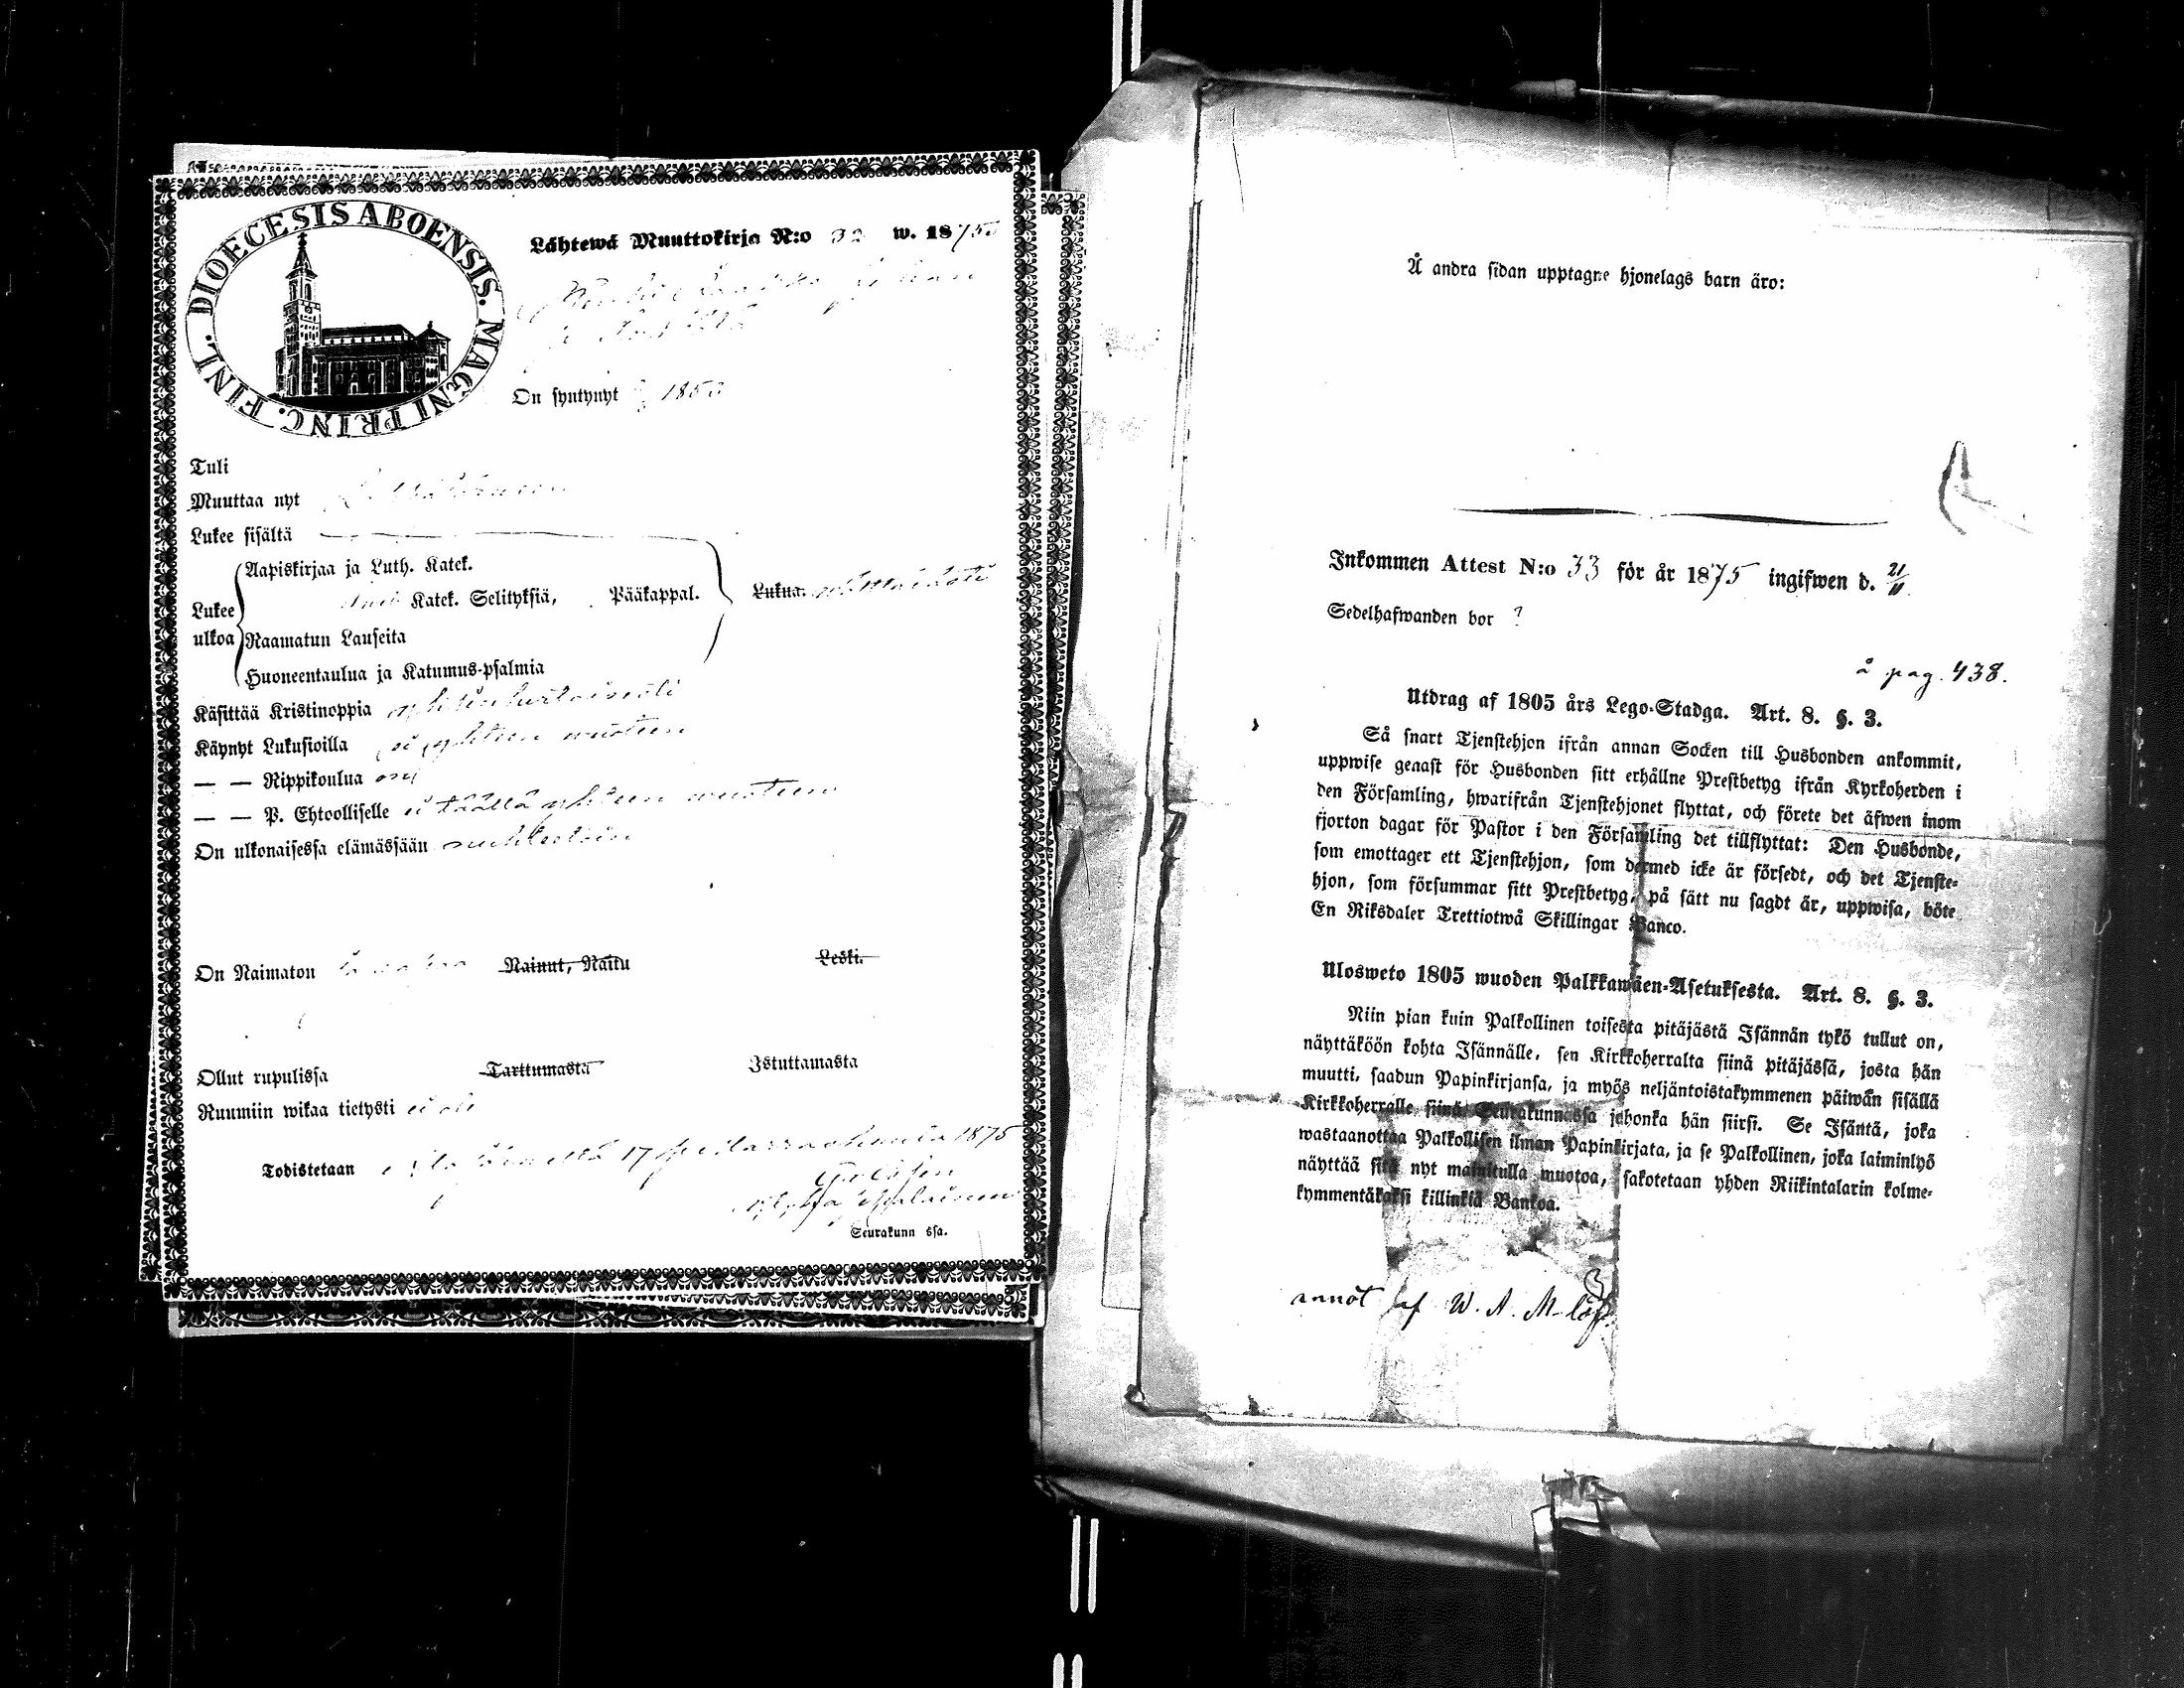 DIOECESIS ABOENSIS. MAGNI PRINC. FINL.
Lähtewä Muuttokirja N:o 32 w. 1875
On syntynyt 1850
Tuli
Muuttaa nyt
Lukee sisältä
Aapiskirjaa ja Luth. Katek.
Lukee ulkoa
Katek. Selityksiä, Pääkappal. Lukua.
Raamatun Lauseita
Huoneentaulua ja Katumus-psalmia
Käsittää Kristinoppia
Käynyt Lukusioilla ei yhteen vuoteen
— — Rippikoulua on
— — P. Ehtoolliselle ei täällä yhteen vuoteen
On ulkonaisessa elämässään
On Naimaton Nainut, Naitu Leski.
Ollut rupulissa Tarttumasta Istuttamasta
Ruumiin wikaa tietysti ei ole
Todistetaan 17 1875
Seurakunn ssa.
Å andra sidan upptagne hjonelags barn äro:
Inkommen Attest N:o 33 för år 1875 ingifwen d. 21/11
Sedelhafwanden bor ?
å pag. 438.
Utdrag af 1805 års Lego-Stadga. Art. 8. §. 3.
Så snart Tjenstehjon ifrån annan Socken till Husbonden ankommit,
uppwise genast för Husbonden sitt erhållne Prestbetyg ifrån Kyrkoherden i
den Församling, hwarifrån Tjenstehjonet flyttat, och förete det äfwen inom
fjorton dagar för Pastor i den Församling det tillflyttat: Den Husbonde,
som emottager ett Tjenstehjon, som dermed icke är försedt, och det Tjenste-
hjon, som försummar sitt Prestbetyg, på sätt nu sagdt är, uppwisa, böte
En Riksdaler Trettiotwå Skillingar Banco.
Ulosweto 1805 wuoden Palkkawäen-Asetuksesta. Art. 8. §. 3.
Niin pian kuin Palkollinen toisesta pitäjästä Isännän tykö tullut on,
näyttäköön kohta Isännälle, sen Kirkkoherralta siinä pitäjässä, josta hän
muutti, saadun Papinkirjansa, ja myös neljäntoistakymmenen päiwän sisällä
Kirkkoherralle siinä Seurakunnassa johonka hän siirsi. Se Isäntä, joka
wastaanottaa Palkollisen ilman Papinkirjata, ja se Palkollinen, joka laiminlyö
näyttää sitä nyt mainitulla muotoa, sakotetaan yhden Riikintalarin kolme-
kymmentäkaksi killinkiä Bankoa.
annot af W. A. M-löf.